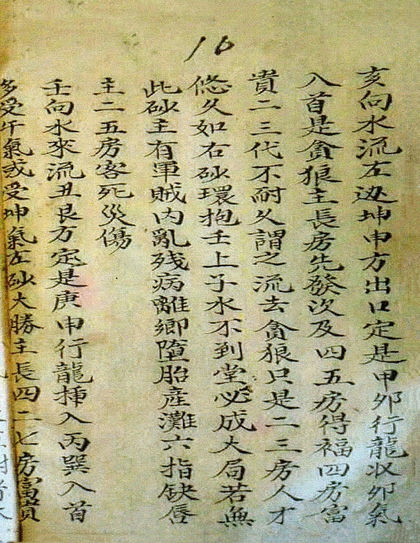 16
亥向水流左边坤申方出口定是甲卯行龍收卯氣
入首是貪狼主長房先發次及四五房得福四房富
貴二三代不耐久謂之流去貪狼只是二三房人才
悠久如右砂環抱壬上子水不到堂必成大局若無
此砂主有軍賊內亂殘病離鄉墮胎產灘六指缺唇
主二五房客死災傷
壬向水來流丑艮方定是庚申行龍揷入丙巽入首
多受午氣或受坤氣左砂大勝主長四二七房富貴